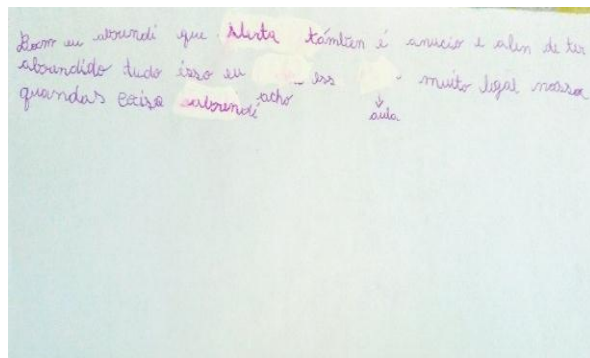 Bom eu abrendi que alerta támbten é anucio e alen de ter
abrandido tudo ésso eu _ ess muito legal nossa
quandas coisa aubrendi acho aula